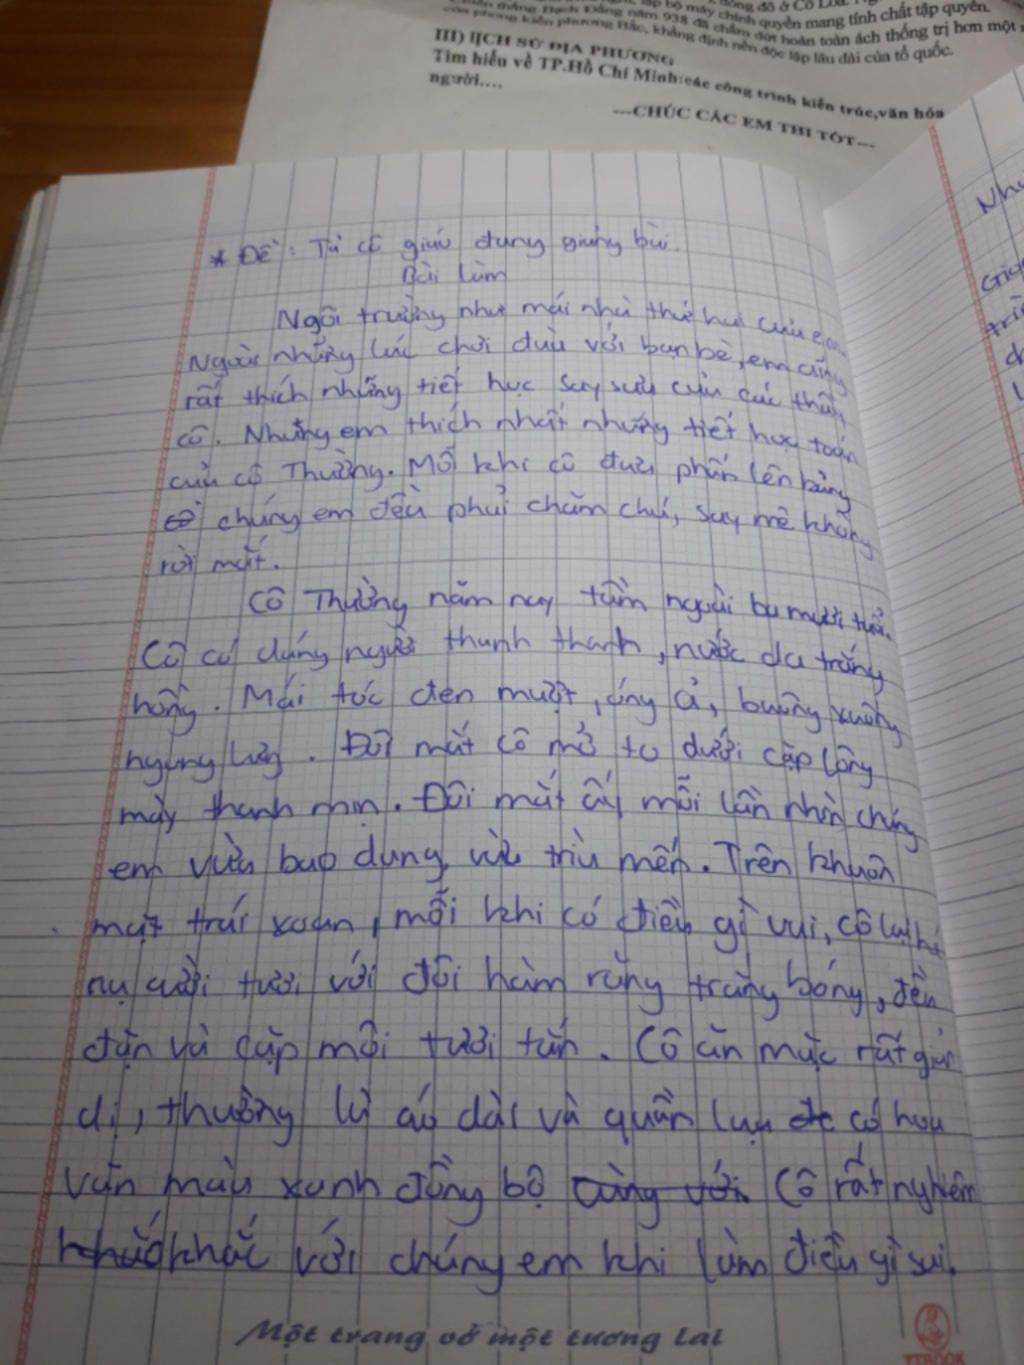 đóng đô ở Cổ Loa.
lập bộ máy chính quyền mang tính chất tập quyền.
thắng Bạch Đằng năm 938 đã chấm dứt hoàn toàn ách thống trị hơn một
của phong kiến phương Bắc, khẳng định nền độc lập lâu dài của tổ quốc.
III) LỊCH SỬ ĐỊA PHƯƠNG
Tìm hiểu về TP.Hồ Chí Minh:các công trình kiến trúc,văn hóa
người....
---CHÚC CÁC EM THI TỐT---
* Đề: Tả cô giáo đang giảng bài.
Bài làm
Ngôi trường như mái nhà thứ hai của em.
Ngoài những lúc chơi đùa với bạn bè, em cũng
rất thích những tiết học say sưa của các thầy
cô. Nhưng em thích nhất những tiết học toán
của cô Thường. Mỗ khi cô đưa phấn lên bảng
chúng em đều phải chăm chú, say mê không
rời mắt.
Cô Thường năm nay tầm ngoài ba mươi tuổi.
Cô có dáng người thanh thanh, nước da trắng
hồng. Mái tóc đen mượt, óng ả, buông xuống
ngang lưng. Đôi mắt cô mở to dưới cặp lông
mày thanh mịn. Đôi mắt ấy mỗi lần nhìn chúng
em vừa bao dung, vừa trìu mến. Trên khuôn
mặt trái xoan, mỗi khi có điều gì vui, cô lại hé
nụ cười tươi với đôi hàm răng trắng bóng, đều
đặn và cặp môi tươi tắn. Cô ăn mặc rất giản
dị, thường là áo dài và quần lụa có hoa
văn màu xanh đồng bộ cùng với. Cô rất nghiêm
khắc với chúng em khi làm điều gì sai.
Một trang vở một tương lai